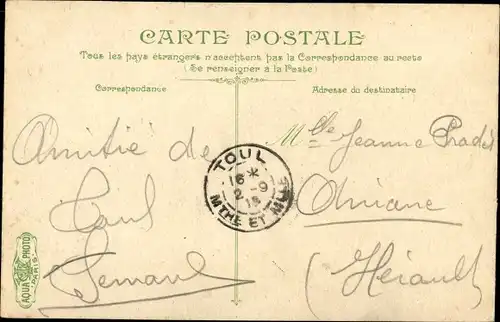 CARTE POSTALE
Tous les pays étrangers n'acceptent pas la Correspondance au recto
(Se renseigner à la Poste)
Correspondance
Adresse du destinataire
Amitié de
Paul
TOUL
16 *
2 -9
MTHE ET MLLE
Mlle Jeanne Prades
Aniane
(Hérault)
AQUA PHOTO
PARIS